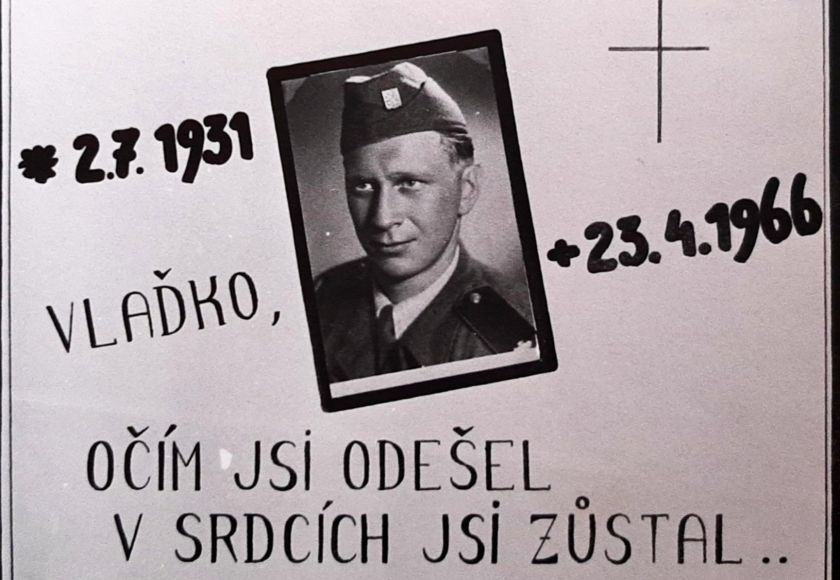 * 2.7. 1931
+ 23.4.1966
VLAĎKO,
OČÍM JSI ODEŠEL
V SRDCÍCH JSI ZŮSTAL..